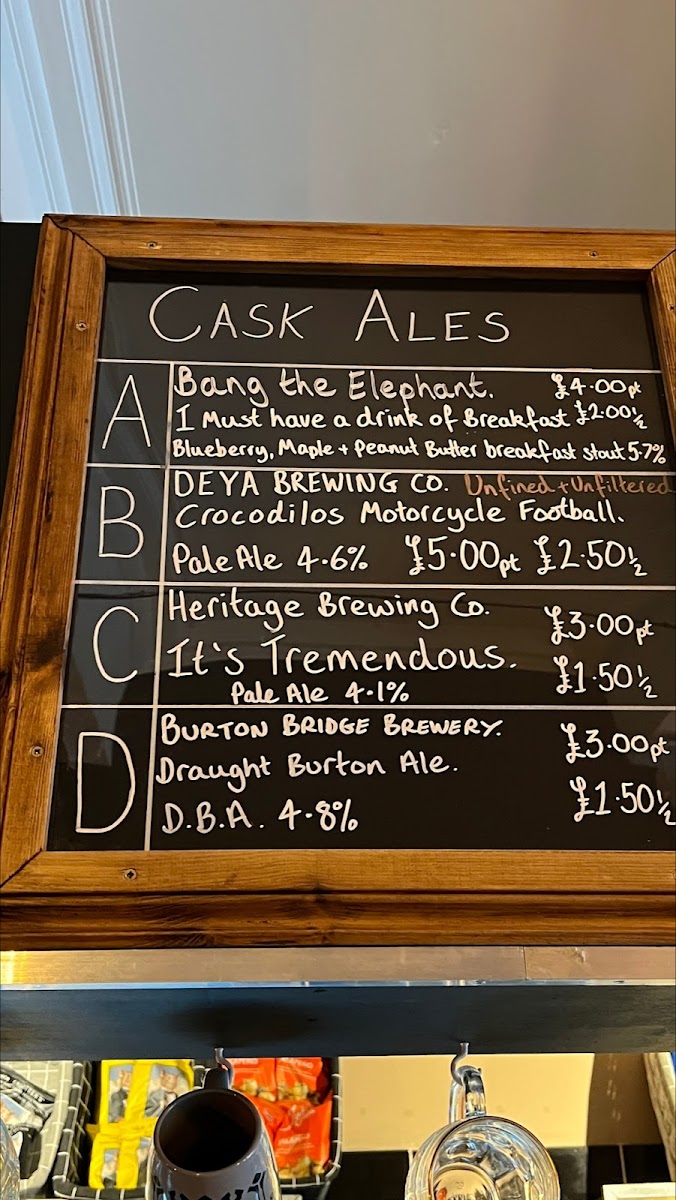 CASK ALES
A
Bang the Elephant. £4.00pt
I Must have a drink of Breakfast £2.00½
Blueberry, Maple + Peanut Butter breakfast stout 5.7%
B
DEYA BREWING CO. Unfined + Unfiltered
Crocodilos Motorcycle Football.
Pale Ale 4.6% £5.00pt £2.50½
C
Heritage Brewing Co. £3.00pt
It's Tremendous. £1.50½
Pale Ale 4.1%
D
BURTON BRIDGE BREWERY. £3.00pt
Draught Burton Ale. £1.50½
D.B.A. 4.8%